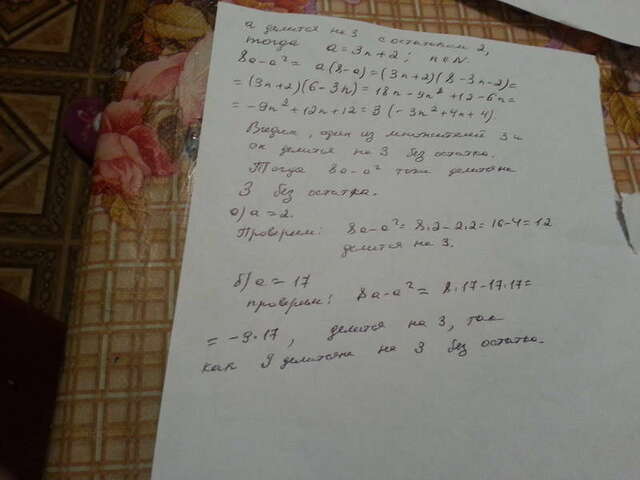 а делится на 3 с остатком 2,
тогда a = 3n + 2; n ∈ N.
8a - a² = a(8 - a) = (3n + 2)(8 - 3n - 2) =
= (3n + 2)(6 - 3n) = 18n - 9n² + 12 - 6n =
= -9n² + 12n + 12 = 3(-3n² + 4n + 4)
Видим, один из множителей 3 и
он делится на 3 без остатка.
Тогда 8a - a² тоже делится на
3 без остатка.
а) a = 2.
Проверим: 8a - a² = 8·2 - 2·2 = 16 - 4 = 12
делится на 3.
б) a = 17
проверим: 8a - a² = 8·17 - 17·17 =
= -9·17, делится на 3, так
как 9 делится на 3 без остатка.